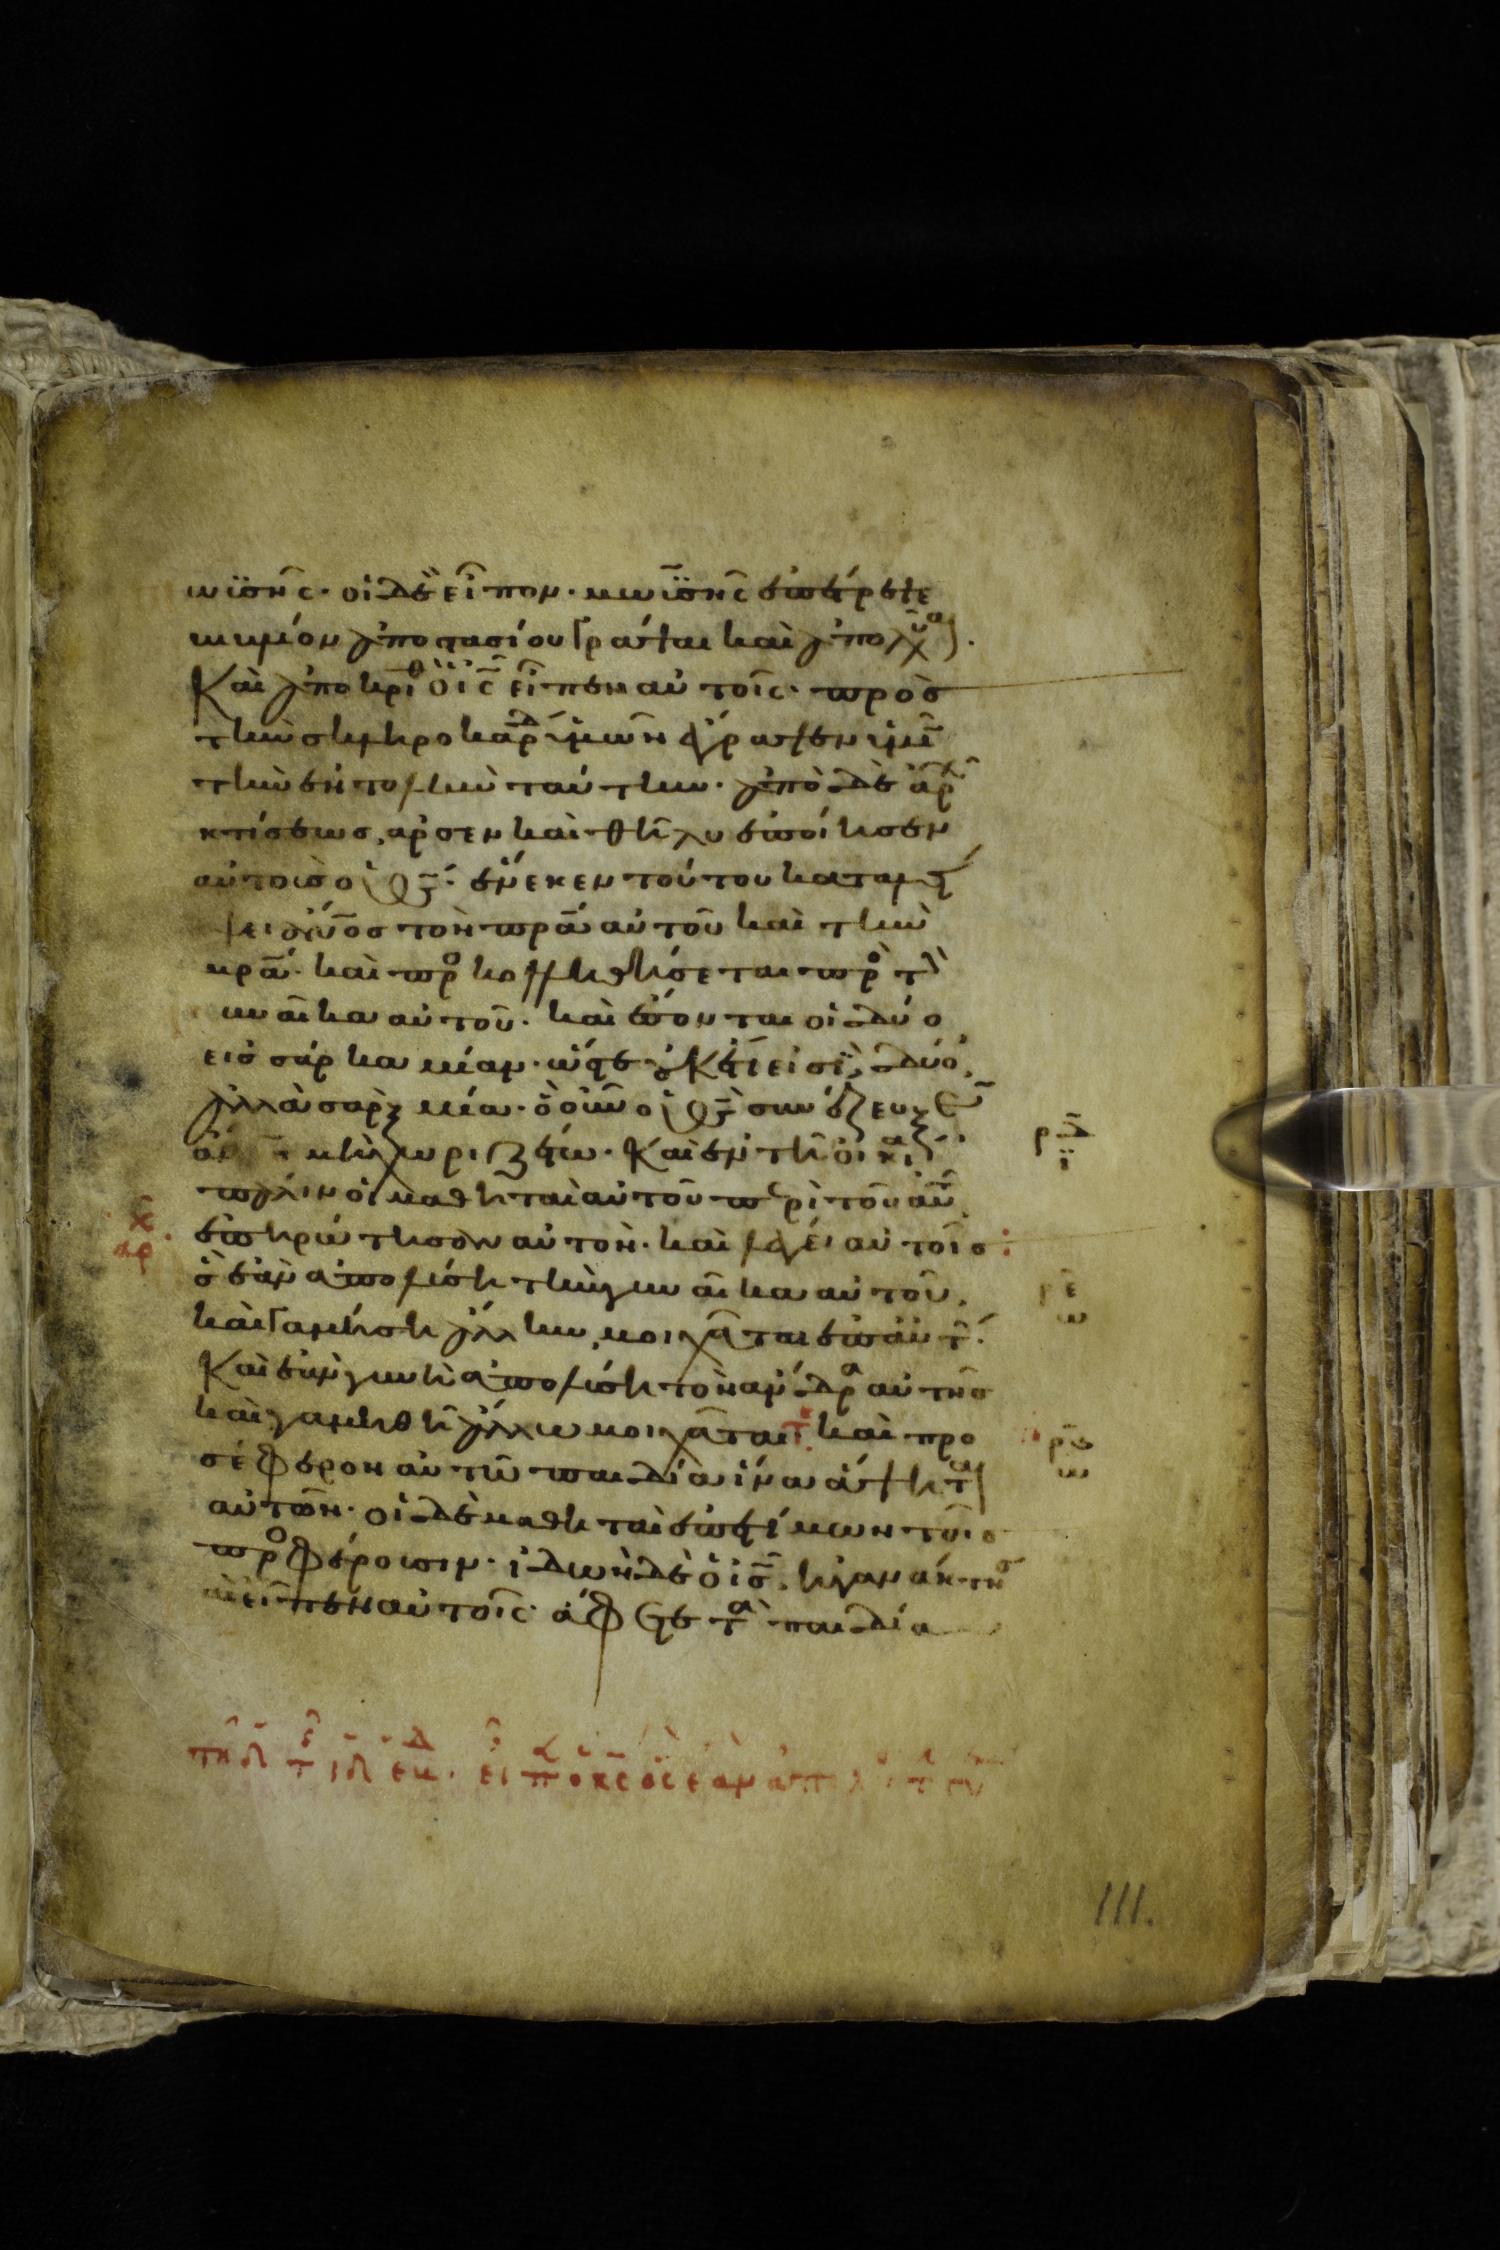 ωϋσῆς· οἱ δὲ εἶπον· μωϋσῆς ἐπέτρεψε
βιβλίον ἀποστασίου γράψαι καὶ ἀπολῦσαι·
Καὶ ἀποκριθ ὁ ις εἶπεν αὐτοῖς· πρὸς
τὴν σκληροκαρδ ὑμῶν ἔγραψεν ὑμῖ
τὴν ἐντολὴν ταύτην· ἀπὸ δὲ ἀρχ
κτίσεως, ἄρσεν καὶ θῆλυ ἐποίησεν
αὐτοὺς ὁ θς· ἕνεκεν τούτου καταλεί
ψει ἄνος τὸν πρα αὐτοῦ καὶ τὴν
μρα· καὶ προ κολληθήσεται πρὸ τὴ
γυναῖκα αὐτοῦ· καὶ ἔσονται οἱ δύο
εἰς σάρκα μίαν· ὥστε οὐκέτι εἰσὶ, δύο,
ἀλλὰ σὰρξ μία· ὃ οὖν ὁ θς συνέζευξεν
μὴ χωριζέτω· Καὶ ἐν τῆ οἰκία
πάλιν οἱ μαθηταὶ αὐτοῦ περὶ τοῦ αὐτοῦ
ἐπηρώτησαν αὐτὸν· καὶ λέγει αὐτοῖς
ὃς ἐὰν ἀπολύση τὴν γυναῖκα αὐτοῦ,
καὶ γαμήση ἄλλην, μοιχᾶται ἐπ' αὐτ·
Καὶ ἐὰν γυνὴ ἀπολύση τὸν ἄνδρα αὐτῆς
καὶ γαμηθῆ ἄλλω μοιχᾶται καὶ προ
σέφερον αὐτῶ παιδία ἵνα ἅψηται
αὐτῶν· οἱ δὲ μαθηταὶ ἐπετίμων τοῖς
προφέρουσιν· ἰδὼν δὲ ὁ ις, ἠγανάκτησ
εἶπεν αὐτοῖς· ἄφετε τὰ παιδία
ρνδ
ρνε
ρνς
111.